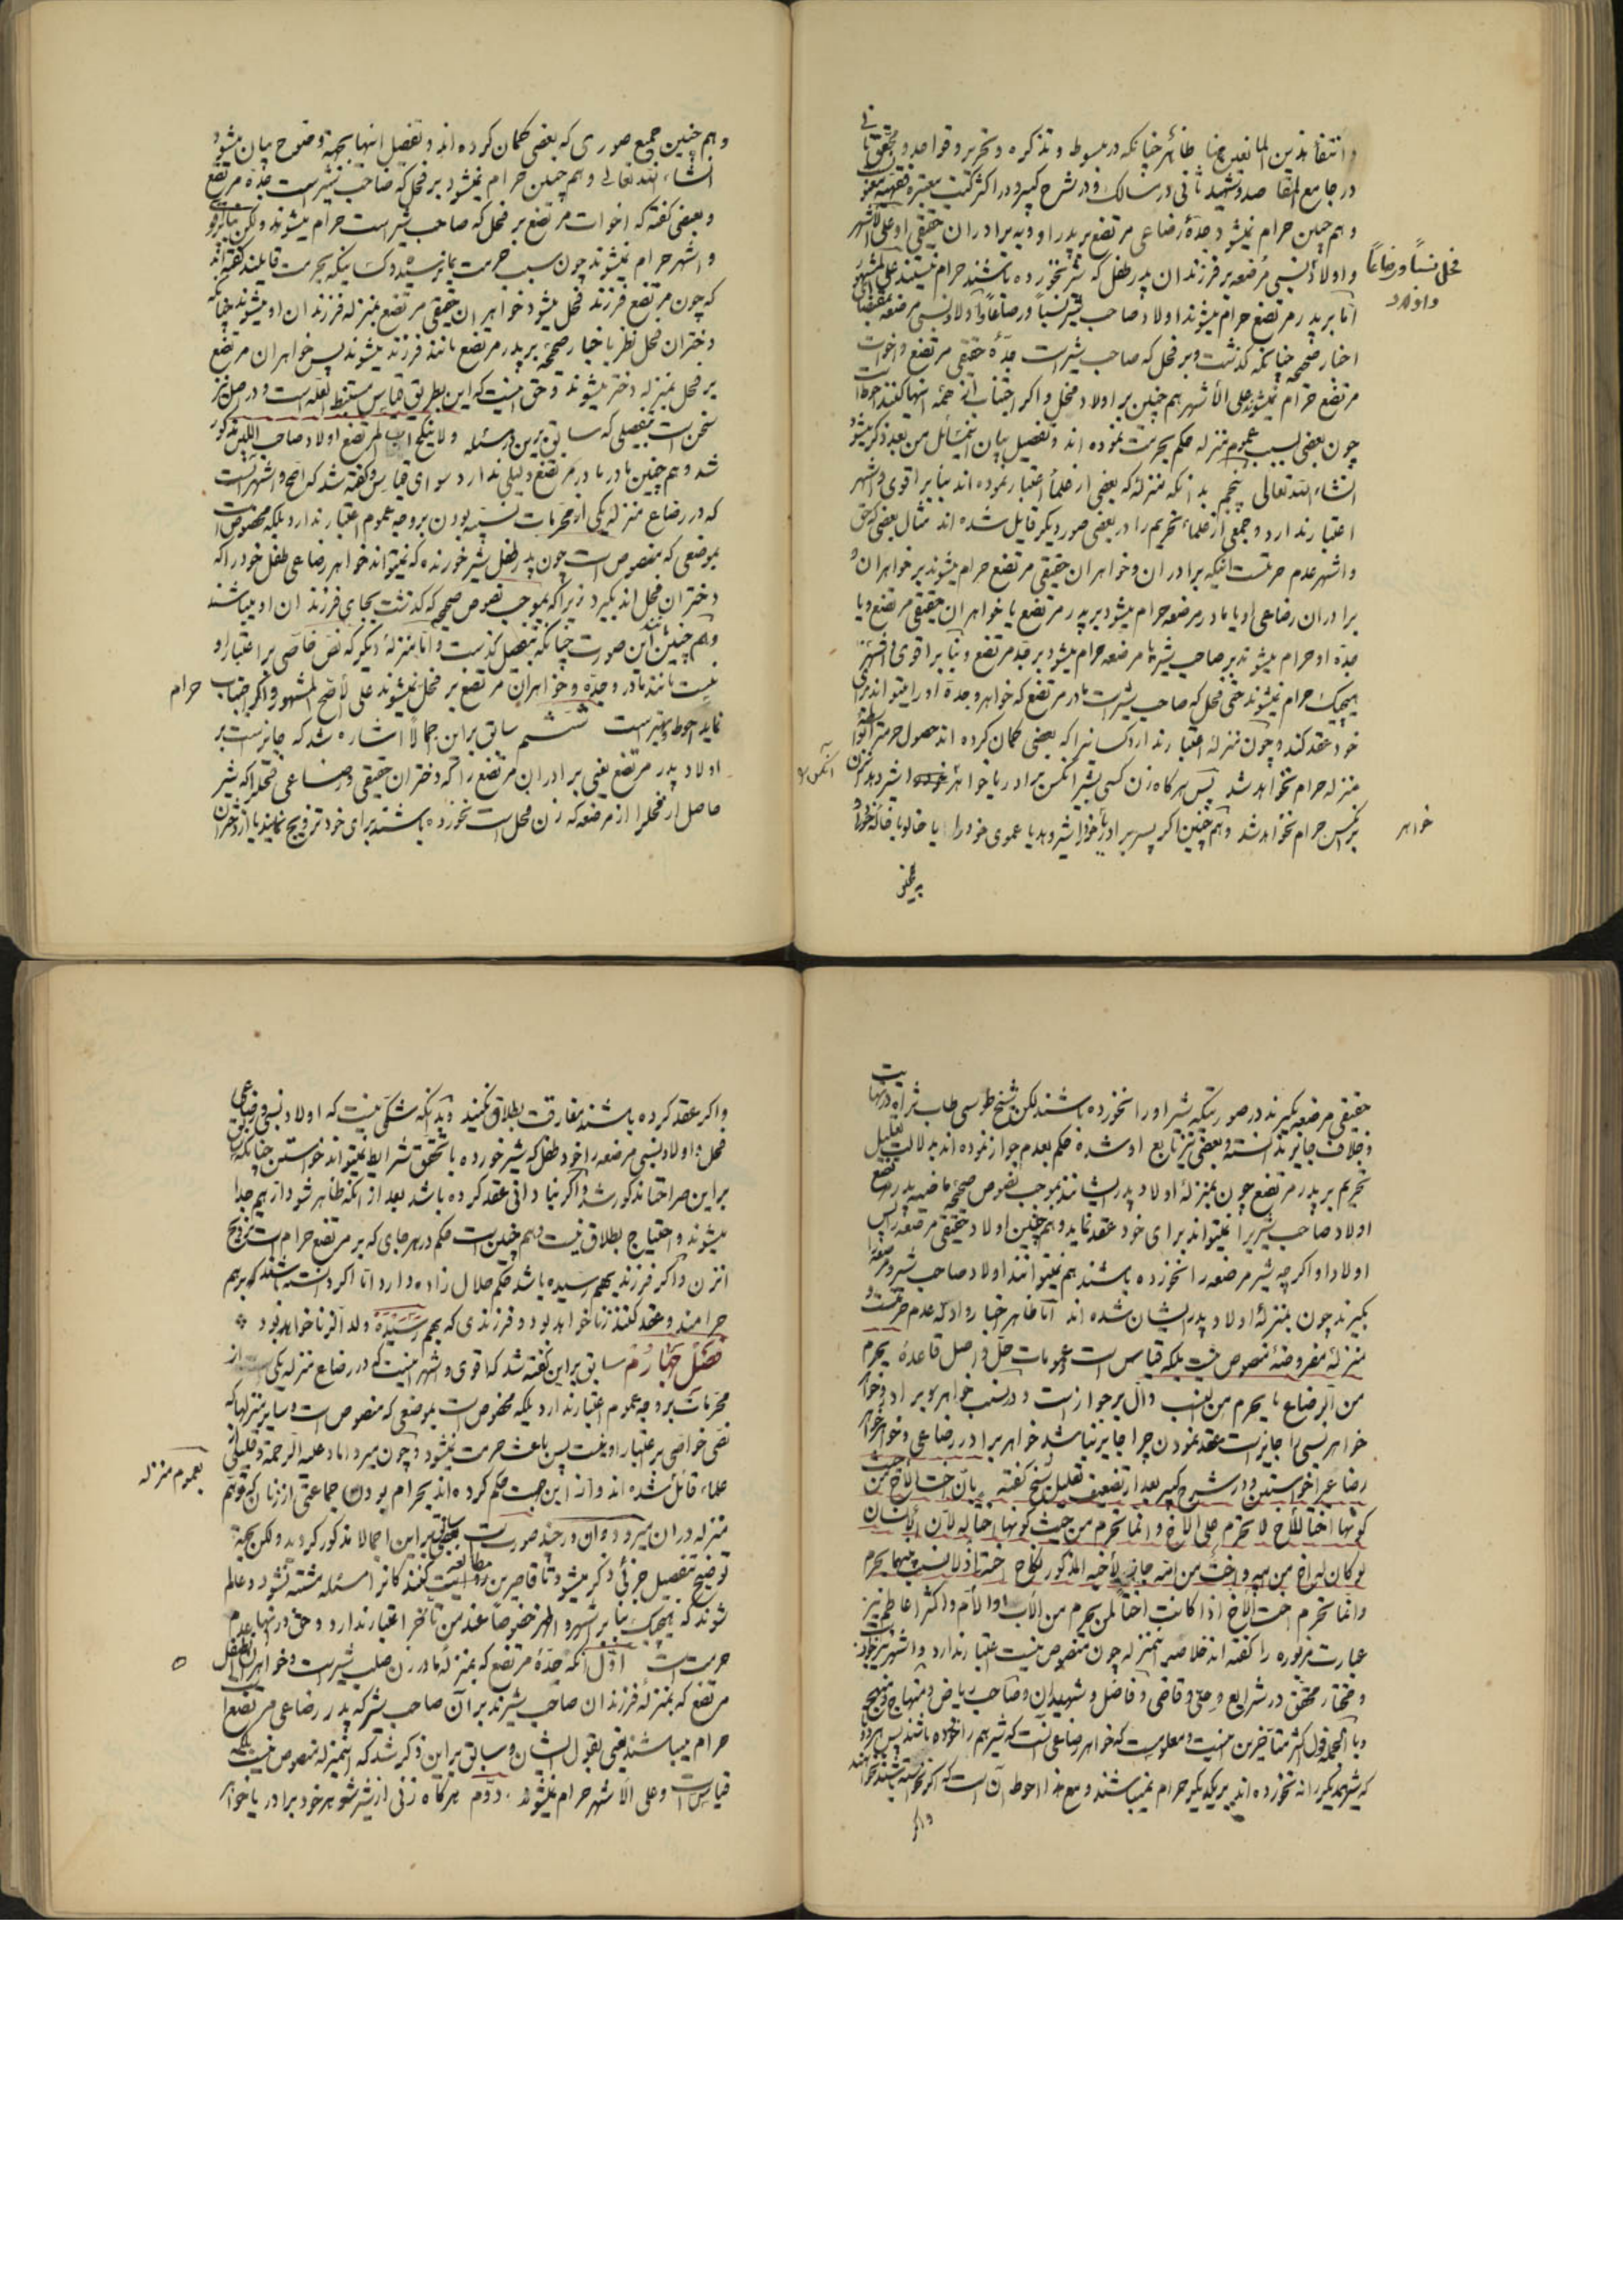 و انتفاء هذین المانعین هنا ظاهر چنانکه در مبسوط و تذکره و تحریر و قواعد و محقق ثانی
در جامع المقاصد و شهید ثانی در مسالک و در شرح کبیر و در اکثر کتب معتبره فقهیه
و هم چنین حرام نمیشود جدّهٔ رضاعی مرتضع بر پدر او و به برادران حقیقی او علی الاشهر
و اولاد نسبی مرضعه بر فرزندان پدر طفل که شیر نخورده باشند حرام نیستند علی المشهور
فحل نسباً و رضاعاً
و اولاد
امّا بر پدر مرتضع حرام میشوند اولاد صاحب شیر نسباً و رضاعاً و اولاد نسبی مرضعه بمقتضای
اخبار صحیحه چنانکه گذشت و بر فحل که صاحب شیر است جدّهٔ حقیقی مرتضع و اخوات
مرتضع حرام نمیشوند علی الأشهر هم چنین بر اولاد فحل و اگر اجتناب از همه اینها کنند احوط است
چون بعضی بسبب عموم منزله حکم بحرمت نموده اند و تفصیل بیان این مسائل من بعد ذکر میشود
انشاء الله تعالی پنجم بدانکه منزله که بعضی از علماء اعتبار نموده اند بنا بر اقوی و اشهر
اعتبار ندارد و جمعی از علماء تحریم را در بعضی صور دیگر قایل شده اند مثال بعضی که حق
و اشهر عدم حرمتست اینکه برادران و خواهران حقیقی مرتضع حرام میشوند بر خواهران و
برادران رضاعی او یا مادر مرضعه حرام میشود بر پدر مرتضع یا خواهران حقیقی مرتضع و یا
جدّه او حرام میشوند بر صاحب شیر یا مرضعه حرام میشود بر جد مرتضع و بنا بر اقوی و اشهر
هیچیک حرام نمیشوند حتی فحل که صاحب شیر است مادر مرتضع که خواهر و جدهٔ او را میتواند برای
خود عقد کند و چون منزله اعتبار ندارد کسانیرا که بعضی گمان کرده اند حصول حرمت را بواسطه
منزله حرام نخواهد شد پس هرگاه زن کسی بشیر آنکس برادر یا خواهر خود را شیر دهد آنزن
بر آنکس حرام نخواهد شد و هم چنین اگر پسر برادر یا خود را شیر دهد یا عموی خود را یا خالو یا خاله خود را
خواهر
و هم چنین جمیع صوری که بعضی گمان کرده اند و تفصیل اینها بجهة وضوح بیان میشود
انشاء الله تعالی و هم چنین حرام نمیشود بر فحل که صاحب شیر است جدّهٔ مرتضع
و بعضی گفته که اخوات مرتضع بر فحل که صاحب شیر است حرام میشوند ولکن بنا بر اقوی
و اشهر حرام نمیشوند چون سبب حرمت بما نرسیده و کسانیکه بحرمت قایلند گفته اند
که چون مرتضع فرزند فحل میشود خواهران حقیقی مرتضع بمنزله فرزندان او میشوند چنانکه
دختران فحل نظر باخبار صحیحه بر پدر مرتضع مانند فرزند میشوند پس خواهران مرتضع
بر فحل بمنزله دختر میشوند و حق اینست که این بطریق قیاس مستنبط العله است و در اصل نیز
سخن است بتفصیلی که سابق برین در مسئله و لا ینکح اب المرتضع اولاد صاحب اللبن مذکور
شد و هم چنین مادر مادر مرتضع دلیلی ندارد سوای قیاس و گفته شد که اصح و اشهر آنست
که در رضاع منزله یکی از محرمات نسبیه بودن بر وجه عموم اعتبار ندارد بلکه مخصوص است
بموضعی که منصوص است چون پدر طفل شیر خورنده که نمیتواند خواهر رضاعی طفل خود را که
دختران فحل اند بگیرد زیرا که بموجب نصوص صحیحه که گذشت بجای فرزندان او میباشند
و هم چنین این صورت چنانکه بتفصیل گذشت و امّا منزلهٔ دیگر که نص خاصی بر اعتبار او
نیست مانند مادر و جدّه و خواهران مرتضع بر فحل نمیشوند علی الأصح المشهور و اگر اجتناب
حرام
نماید احوط و بهتر است ششم سابق براین اجمالاً اشاره شد که جایز است بر
اولاد پدر مرتضع یعنی برادران مرتضع را که دختران حقیقی و رضاعی فحل را که شیر
حاصل از فحل را از مرضعه که زن فحل است نخورده باشند برای خود تزویج نمایند یا از دختران
حقیقی مرضعه بگیرند در صورتیکه شیر او را نخورده باشند لکن شیخ طوسی طاب ثراه در نهایت
و خلاف جایز ندانسته و بعضی نیز تابع او شده حکم بعدم جواز نموده اند به دلالت تعلیل
تحریم بر پدر مرتضع چون بمنزلهٔ اولاد پدر ایشانند بموجب نصوص صحیحه ماضیه پدر مرتضع
اولاد صاحب شیر را نمیتواند برای خود عقد نماید و هم چنین اولاد حقیقی مرضعه را پس
اولاد او اگر چه شیر مرضعه را نخورده باشند هم نمیتوانند اولاد صاحب شیر و مرضعه را
بگیرند چون بمنزلهٔ اولاد پدر ایشان شده اند امّا ظاهر اخبار و ادلّه عدم حرمتست و
منزلهٔ مفروضهٔ منصوص نیست بلکه قیاس است و عمومات حلّ و اصل قاعدهٔ یحرم
من الرضاع ما یحرم من النسب دالّ بر جواز است و در نسب خواهر برادر و خواهر
خواهر نسبی را جایز است عقد نمودن چرا جایز نباشد خواهر برادر رضاعی و خواهر خواهر
رضاعیرا خواستن و در شرح کبیر بعد از تضعیف تعلیل شیخ گفته بانّ اخت الاخ من حیث
کونها اختا للأخ لا تحرم علی الاخ و انما تحرم من حیث کونها اختا له لانّ
لو کان له اخ من ابیه و اخت من امّه جاز لأخیه المذکور نکاح اخته اذ لا نسب بینهما یحرم
و انما تحرم اخت الاخ اذا کانت اختاً لمن یحرم من الأب او الأم و اکثر اعاظم نیز
عبارت مزبوره را گفته اند خلاصه اینمنزله چون منصوص نیست اعتبار ندارد و اشهر نیز جواز
و مختار محقق در شرایع و حلّی و قاضی و فاضل و شهیدان و صاحب ریاض و منهاج و منهج
و بالجمله قول اکثر متأخرین اینست و معلومست که خواهر رضاعی آنست که شیر هم را خورده باشند پس هر دو
که شیر همدیگر را نه خورده اند بر یکدیگر حرام نمیباشند و مع هذا احوط آن است که اگر نخواسته باشند نخواهند
و اگر
و اگر عقد کرده باشند مفارقت بطلاق نکنند و بدانکه شکی نیست که اولاد نسبی و رضاعی
فحل و اولاد نسبی مرضعه را خود طفل که شیر خورده با تحقق شرایط نمیتواند خواستن چنانکه
براین صراحتا مذکور شد و اگر بنادانی عقد کرده باشد بعد از آنکه ظاهر شود از هم جدا
میشوند و احتیاج بطلاق نیست و هم چنین است حکم در هر جای که بر مرتضع حرام است تزویج
آنزن و اگر فرزند بهم رسیده باشد حکم حلال زاده دارد امّا اگر دانسته باشند که بر هم
حرامند و عقد کنند زنا خواهد بود و فرزندی که بهم رسیده ولد الزنا خواهد بود
فصل چهارم سابق براین گفته شد که اقوی و اشهر اینست که در رضاع منزله یکی از
محرمات بر وجه عموم اعتبار ندارد بلکه مخصوص است بموضعی که منصوص است و سایر منزلها که
نص خواصّی بر اعتبار او نیست پس باعث حرمت نمیشود و چون میرداماد علیه الرحمة و قلیلی از
علماء قائل شده اند و از این جهت حکم کرده اند بحرام بودن جماعتی از زنان که توهّم
بعموم منزله
منزله در ان میرود و ان در چند صورت است سابق براین اجمالا مذکور گردید ولکن بجهة
توضیح بتفصیل جزئی ذکر میشود تا قاصرین مطالعه کنند کانرا مسئله مشتبه نشود و عالم
شوند که هیچیک بنا بر اشهر و اظهر خصوصاً عند من تأخر اعتبار ندارد و حق در اینها عدم
حرمت است اوّل آنکه جدّه مرتضع که بمنزلهٔ مادر زن صاحب شیر است و خواهران طفل
مرتضع که بمنزلهٔ فرزندان صاحب شیرند بر آن صاحب شیر که پدر رضاعی مرتضع است
حرام میباشند یعنی بقول ایشان و سابق براین ذکر شد که اینمنزله منصوص نیست بلکه
قیاس است و علی الاشهر حرام نمیشوند . دوّم هرگاه زنی از شیر شوهر خود برادر یا خواهر